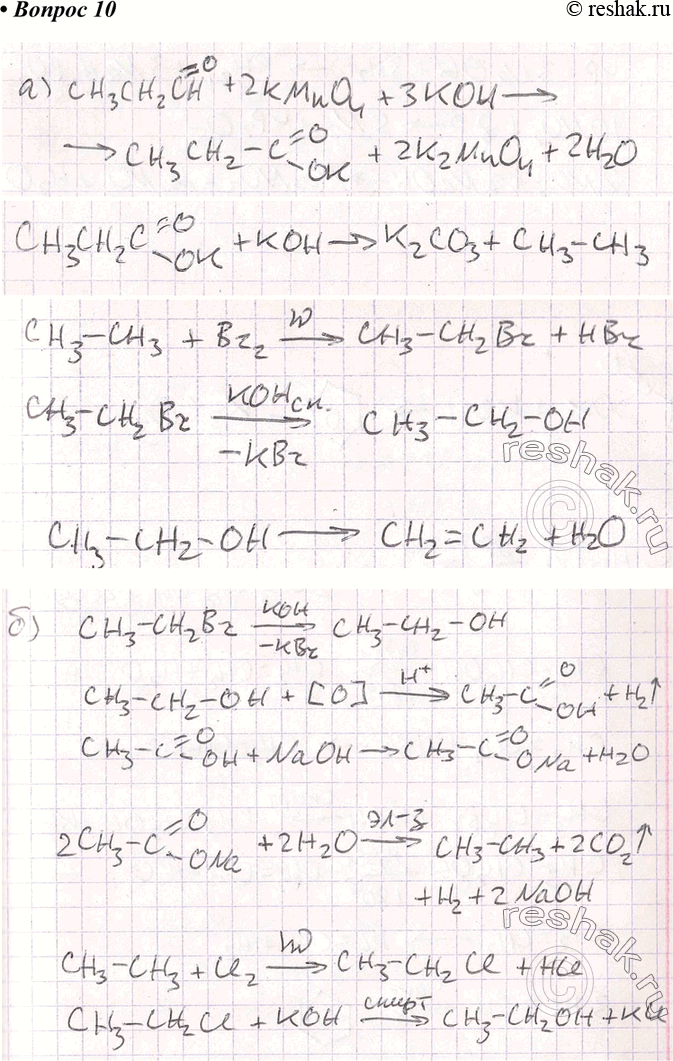 • Вопрос 10
© reshak.ru
а) CH3CH2CH=O + 2KMnO4 + 3KOH ⟶
⟶ CH3CH2-C=O-OK + 2K2MnO4 + 2H2O
CH3CH2C=O-OK + KOH ⟶ K2CO3 + CH3-CH3
CH3-CH3 + Br2 hν⟶ CH3-CH2Br + HBr
CH3-CH2Br KOHсп.⟶ -KBr CH3-CH2-OH
CH3-CH2-OH ⟶ CH2=CH2 + H2O
б) CH3-CH2Br KOH⟶ -KBr CH3-CH2-OH
CH3-CH2-OH + [O] H+⟶ CH3-C=O-OH + H2↑
CH3-C=O-OH + NaOH ⟶ CH3-C=O-ONa + H2O
2CH3-C=O-ONa + 2H2O эл-з⟶ CH3-CH3 + 2CO2↑
+ H2 + 2NaOH
CH3-CH3 + Cl2 hν⟶ CH3-CH2Cl + HCl
CH3-CH2Cl + KOH спирт⟶ CH3-CH2OH + KCl
reshak.ru
©
reshak.ru
©